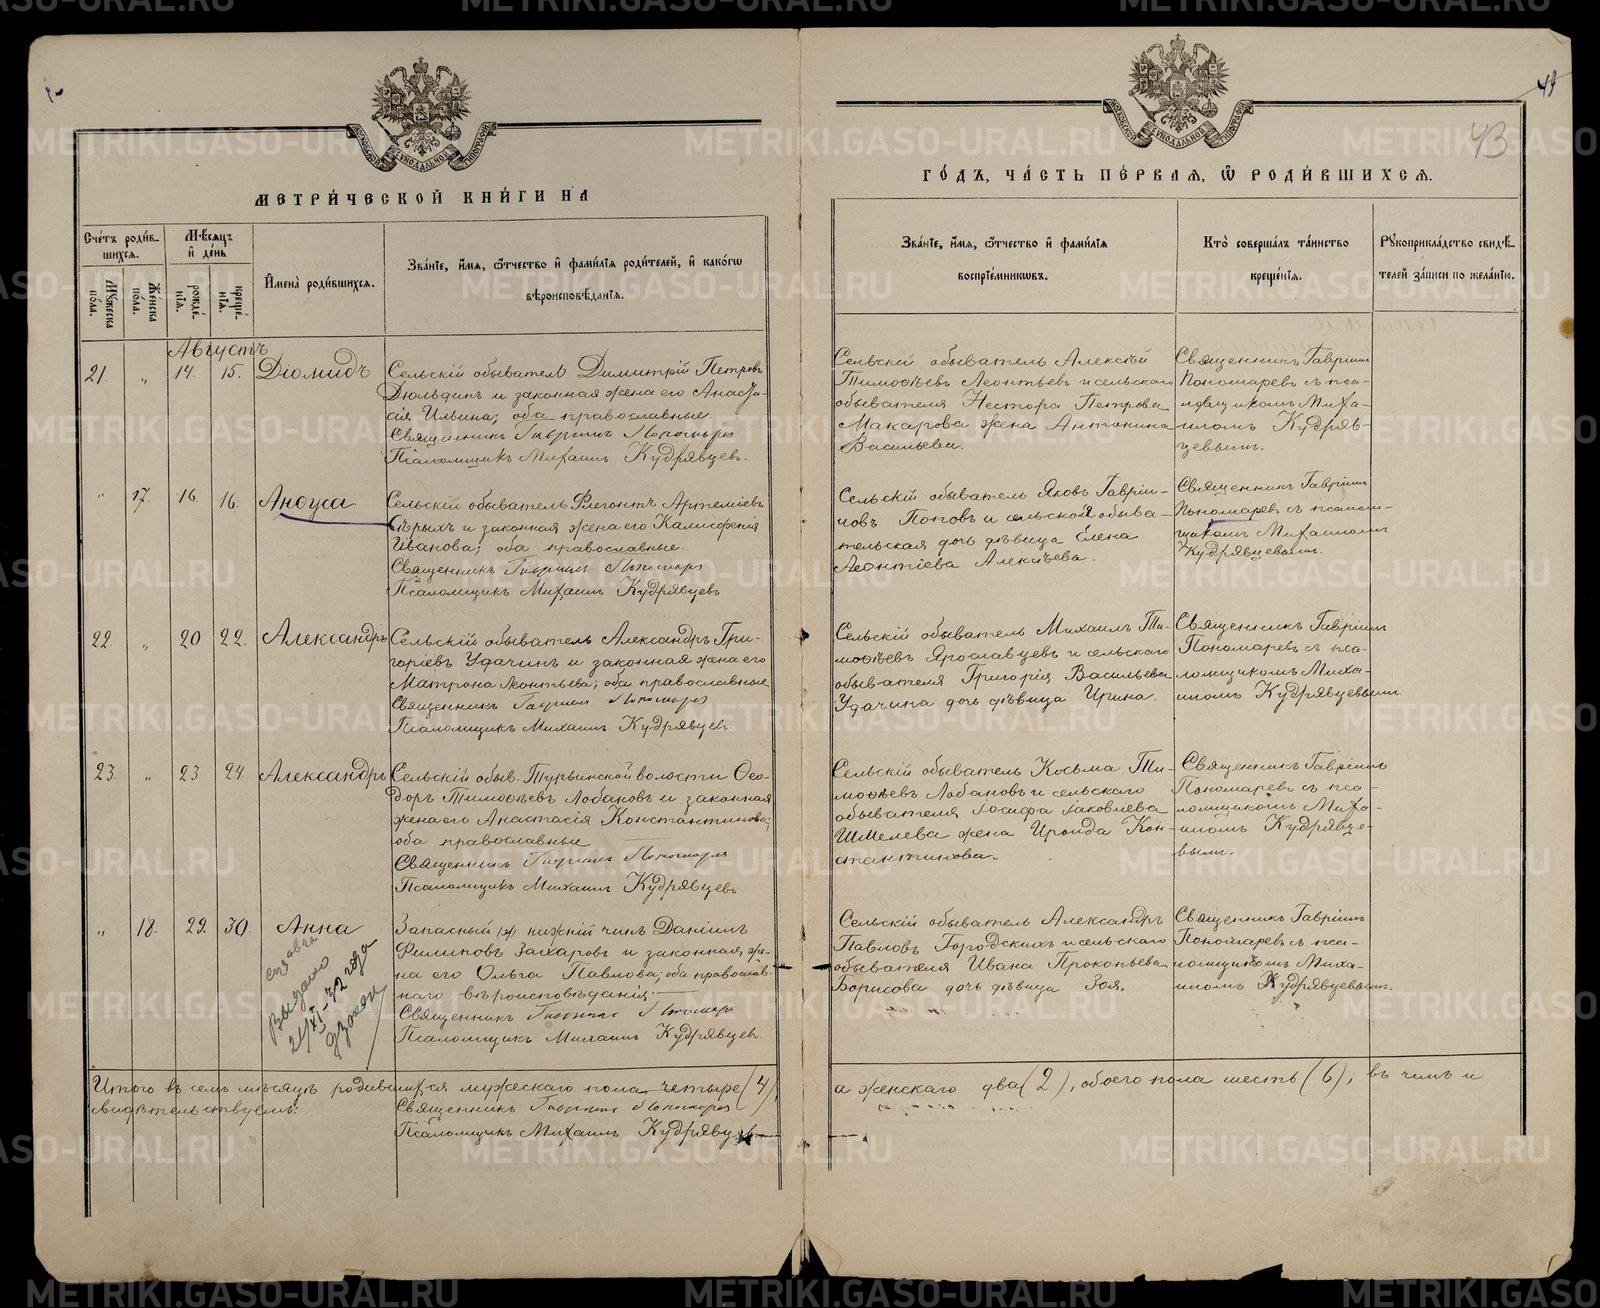 49
43
МЕТРИ́ЧЕСКОЙ КНИ́ГИ НА
ГО́ДЪ, ЧА́СТЬ ПЕ́РВАЯ, Ѡ РОДИ́ВШИХСЯ.
Сче́тъ роди́в-
шихся.
Му́жеска
по́ла.
Же́нска
по́ла.
Мѣ́сяцъ
и де́нь
рожде́-
нія.
креще́-
нія.
И̓мена̀ роди́вшихся.
Зва́ніе, и́мя, ѻ́тчество и фами́лія роди́телей, и како́гѡ
вѣроисповѣ́данія.
Зва́ніе, и́мя, ѻ́тчество и фами́лія
воспріе́мниковъ.
Кто̀ соверша́лъ та́инство
креще́нія.
Рукоприкла́дство свидѣ́-
телей за́писи по жела́нію.
Августъ
21. „ 14. 15. Діомидъ
Сельскій обыватель Димитрій Петровъ
Дюльдинъ и законная жена его Анаста-
сія Ильина; оба православные.
Священникъ Гавріилъ Пономарев
Псаломщикъ Михаилъ Кудрявцевъ.
Сельскій обыватель Алексѣй
Тимоѳѣевъ Леонтьевъ и сельскаго
обывателя Нестора Петрова
Макарова жена Антонина
Васильева.
Священникъ Гавріилъ
Пономаревъ съ пса-
ломщикомъ Миха-
иломъ Кудряв-
цевымъ.
„ 17. 16. 16. Анѳуса
Сельскій обыватель Флегонтъ Артеміевъ
Сѣрыхъ и законная жена его Каллисѳенія
Иванова; оба православные.
Священникъ Гавріилъ Пономарев
Псаломщикъ Михаилъ Кудрявцевъ
Сельскій обыватель Яковъ Гаврії-
ловъ Поповъ и сельской обыва-
тельская дочь дѣвица Елена
Леонтіева Алексѣева.
Священникъ Гавріилъ
Пономаревъ съ псалом-
щикомъ Михаиломъ
Кудрявцевымъ.
22. „ 20 22. Александръ
Сельскій обыватель Александръ Гри-
горіевъ Удачинъ и законная жена его
Матрона Леонтьева; оба православные
Священникъ Гавріилъ Пономарев
Псаломщикъ Михаилъ Кудрявцевъ.
Сельскій обыватель Михаилъ Ти-
моѳѣевъ Ярославцевъ и сельскаго
обывателя Григорія Васильева
Удачина дочь дѣвица Ирина.
Священникъ Гавріилъ
Пономаревъ съ пса-
ломщикомъ Миха-
иломъ Кудрявцевымъ.
23. „ 23 24 Александръ
Сельскій обыв. Турьинской волости Ѳео-
доръ Тимоѳѣевъ Лобановъ и законная
жена его Анастасія Константинова;
оба православные
Священникъ Гавріилъ Пономарев
Псаломщикъ Михаилъ Кудрявцевъ.
Сельскій обыватель Косьма Ти-
моѳѣевъ Лобановъ и сельскаго
обывателя Іосифа Іаковлева
Шмелева жена Ираида Кон-
стантинова.
Священникъ Гавріилъ
Пономаревъ съ пса-
ломщикомъ Миха-
иломъ Кудрявце-
вымъ.
„ 18. 29. 30. Анна
справка
Выдано
21/XI-32 года
Запасный нижній чинъ Даніилъ
Филиповъ Захаровъ и законная же-
на его Ольга Павлова; оба православ-
наго вѣроисповѣданія.
Священникъ Гавріилъ Пономарев
Псаломщикъ Михаилъ Кудрявцевъ.
Сельскій обыватель Александръ
Павловъ Городскихъ и сельскаго
обывателя Ивана Прокопьева
Борисова дочь дѣвица Зоя.
Священникъ Гавріилъ
Пономаревъ съ пса-
ломщикомъ Миха-
иломъ Кудрявцевымъ.
Итого въ семъ мѣсяцѣ родившихся мужескаго пола четыре (4), а женскаго два (2), обоего пола шесть (6); въ чемъ и
свидѣтельствуемъ:
Священникъ Гавріилъ Пономарев
Псаломщикъ Михаилъ Кудрявцевъ
METRIKI.GASO-URAL.RU